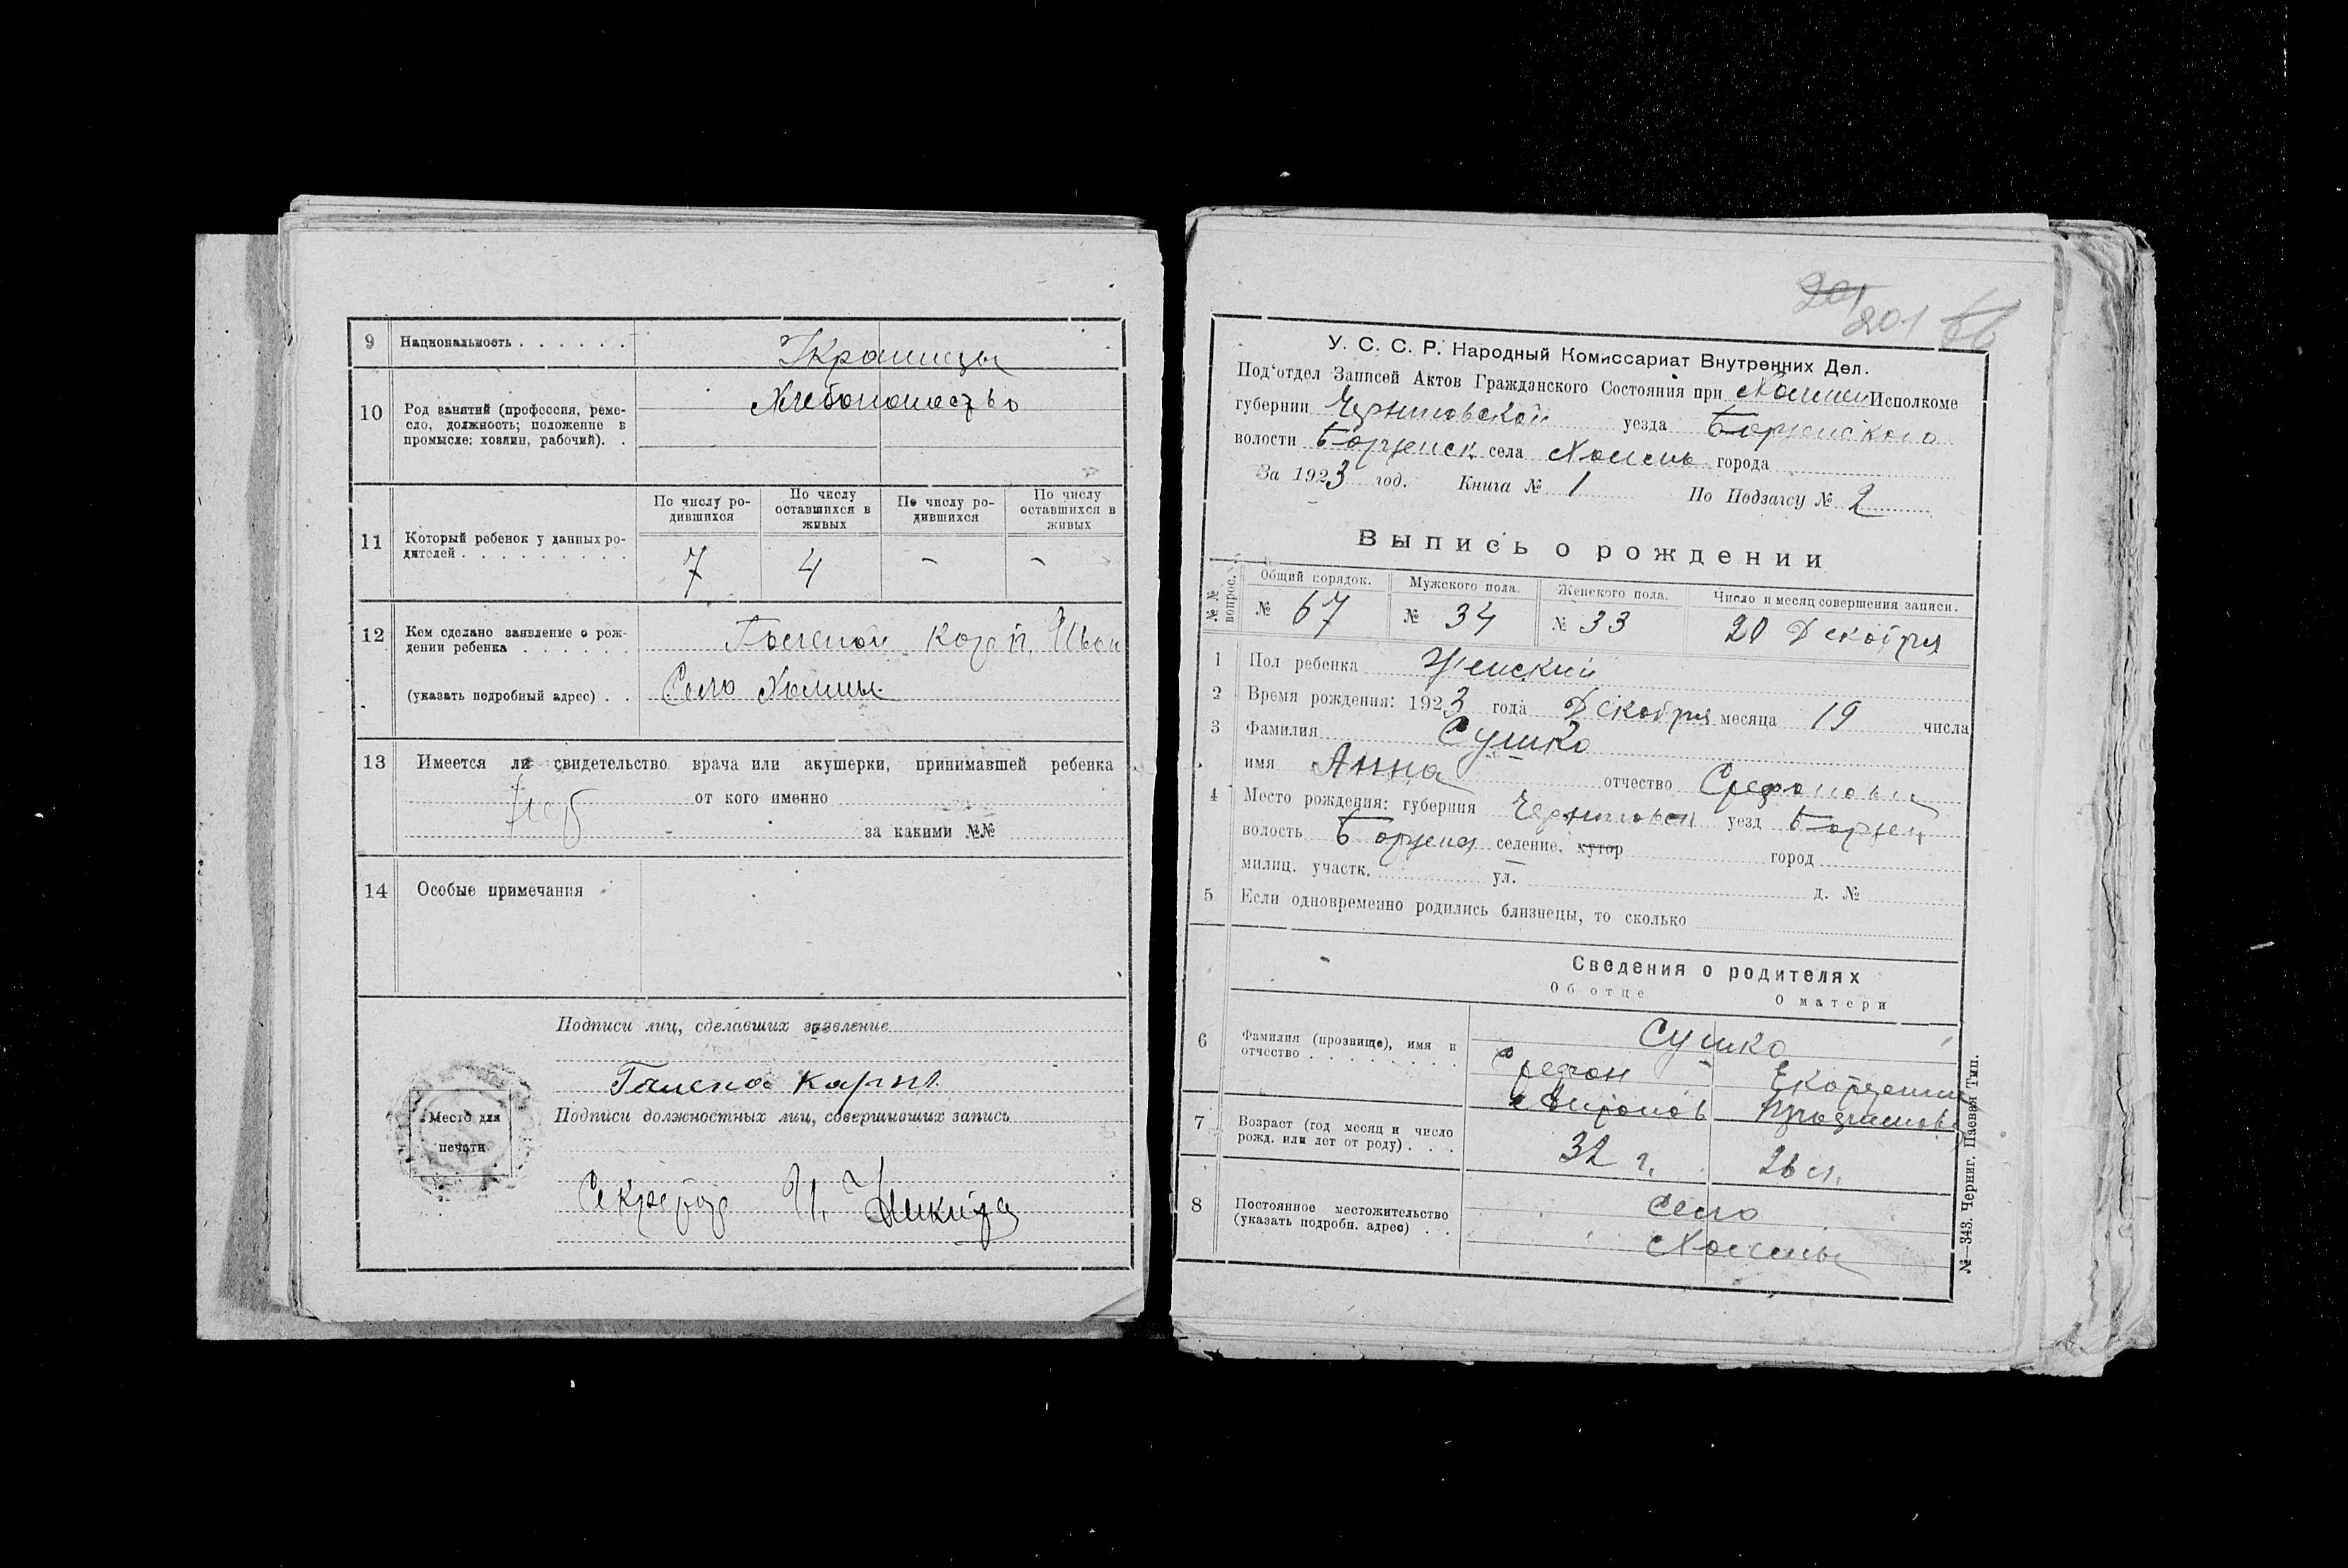 9 Национальность . . . . . .
Украинцы
10 Род занятий (профессия, реме-
сло, должность; положение в
промысле: хозяин, рабочий). .
Хлебопашество
11 Который ребенок у данных ро-
дителей . . . . . . . . .
По числу ро-
дившихся
По числу
оставшихся в
живых
По числу ро-
дившихся
По числу
оставшихся в
живых
7 4 - -
12 Кем сделано заявление о рож-
дении ребенка . . . . . .
(указать подробный адрес) . .
Село Холмы
13 Имеется ли свидетельство врача или акушерки, принимавшей ребенка
от кого именно
за какими №№
14 Особые примечания
Подписи лиц, сделавших заявление
Подписи должностных лиц, совершивших запись
Место для
печати
Секретар
201
201
У. С. С. Р. Народный Комиссариат Внутренних Дел.
Под'отдел Записей Актов Гражданского Состояния при Холмен Исполкоме
губернии Черниговской уезда Борзенского
волости Борзенск села Холмы города
За 1923 год. Книга № 1 По Подзагсу № 2
Выпись о рождении
№№ вопрос.
Общий порядок. Мужского пола. Женского пола. Число и месяц совершения записи.
№ 67 № 34 № 33 20 Декабря
1 Пол ребенка Женский
2 Время рождения: 1923 года Декабря месяца 19 числа
3 Фамилия Сушко
имя Анна отчество
4 Место рождения: губерния Черниговск уезд Борзен
волость Борзенск селение, хутор город
милиц. участк. ул. д. №
5 Если одновременно родились близнецы, то сколько
Сведения о родителях
Об отце О матери
6 Фамилия (прозвище), имя и
отчество . . . . . . . .
Сушко
7 Возраст (год месяц и число
рожд. или лет от роду) . . .
32 г. 26 л.
8 Постоянное местожительство
(указать подробн. адрес) . .
Село
Холмы
№—343. Черниг. Паевая Тип.